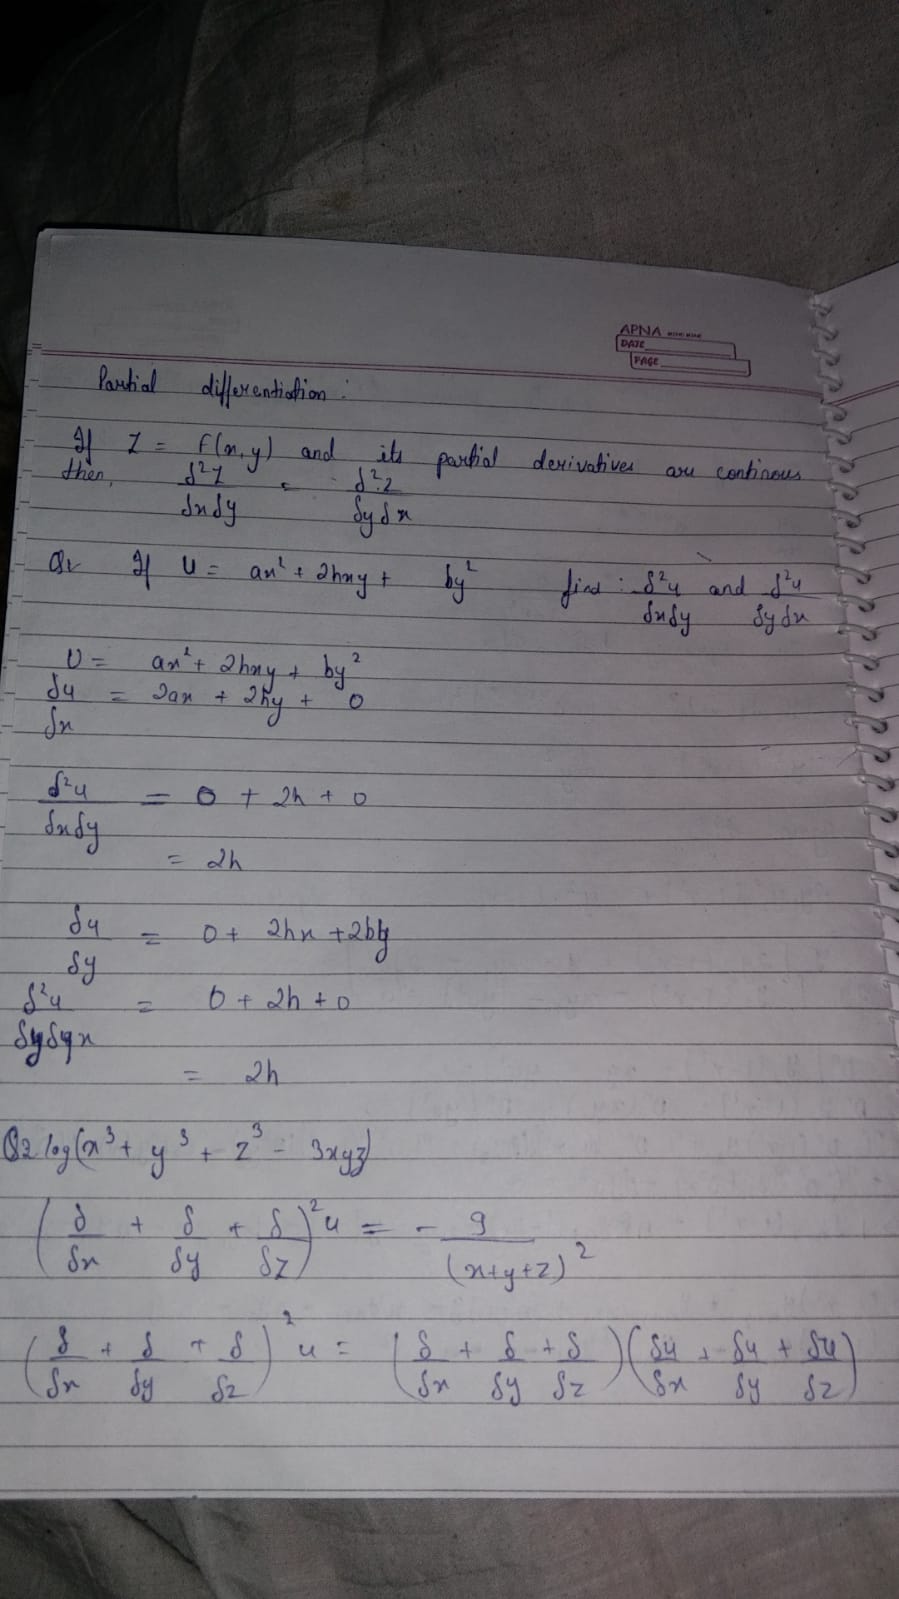 APNA
DATE
PAGE
Partial differentiation :
If Z = f(x,y) and its partial derivatives are continous
then, δ²Z/δxδy = δ²z/δyδx
If U = ax² + 2hxy + by² find : δ²u/δxδy and δ²u/δyδx
U = ax² + 2hxy + by²
δu/δx = 2ax + 2hy + 0
δ²u/δxδy = 0 + 2h + 0
= 2h
δu/δy = 0 + 2hx + 2by
δ²u/δyδx = 0 + 2h + 0
= 2h
Q2 log(x³ + y³ + z³ - 3xyz)
(δ/δx + δ/δy + δ/δz)² u = - 9/(x+y+z)²
(δ/δx + δ/δy + δ/δz)² u = (δ/δx + δ/δy + δ/δz)(δu/δx + δu/δy + δu/δz)